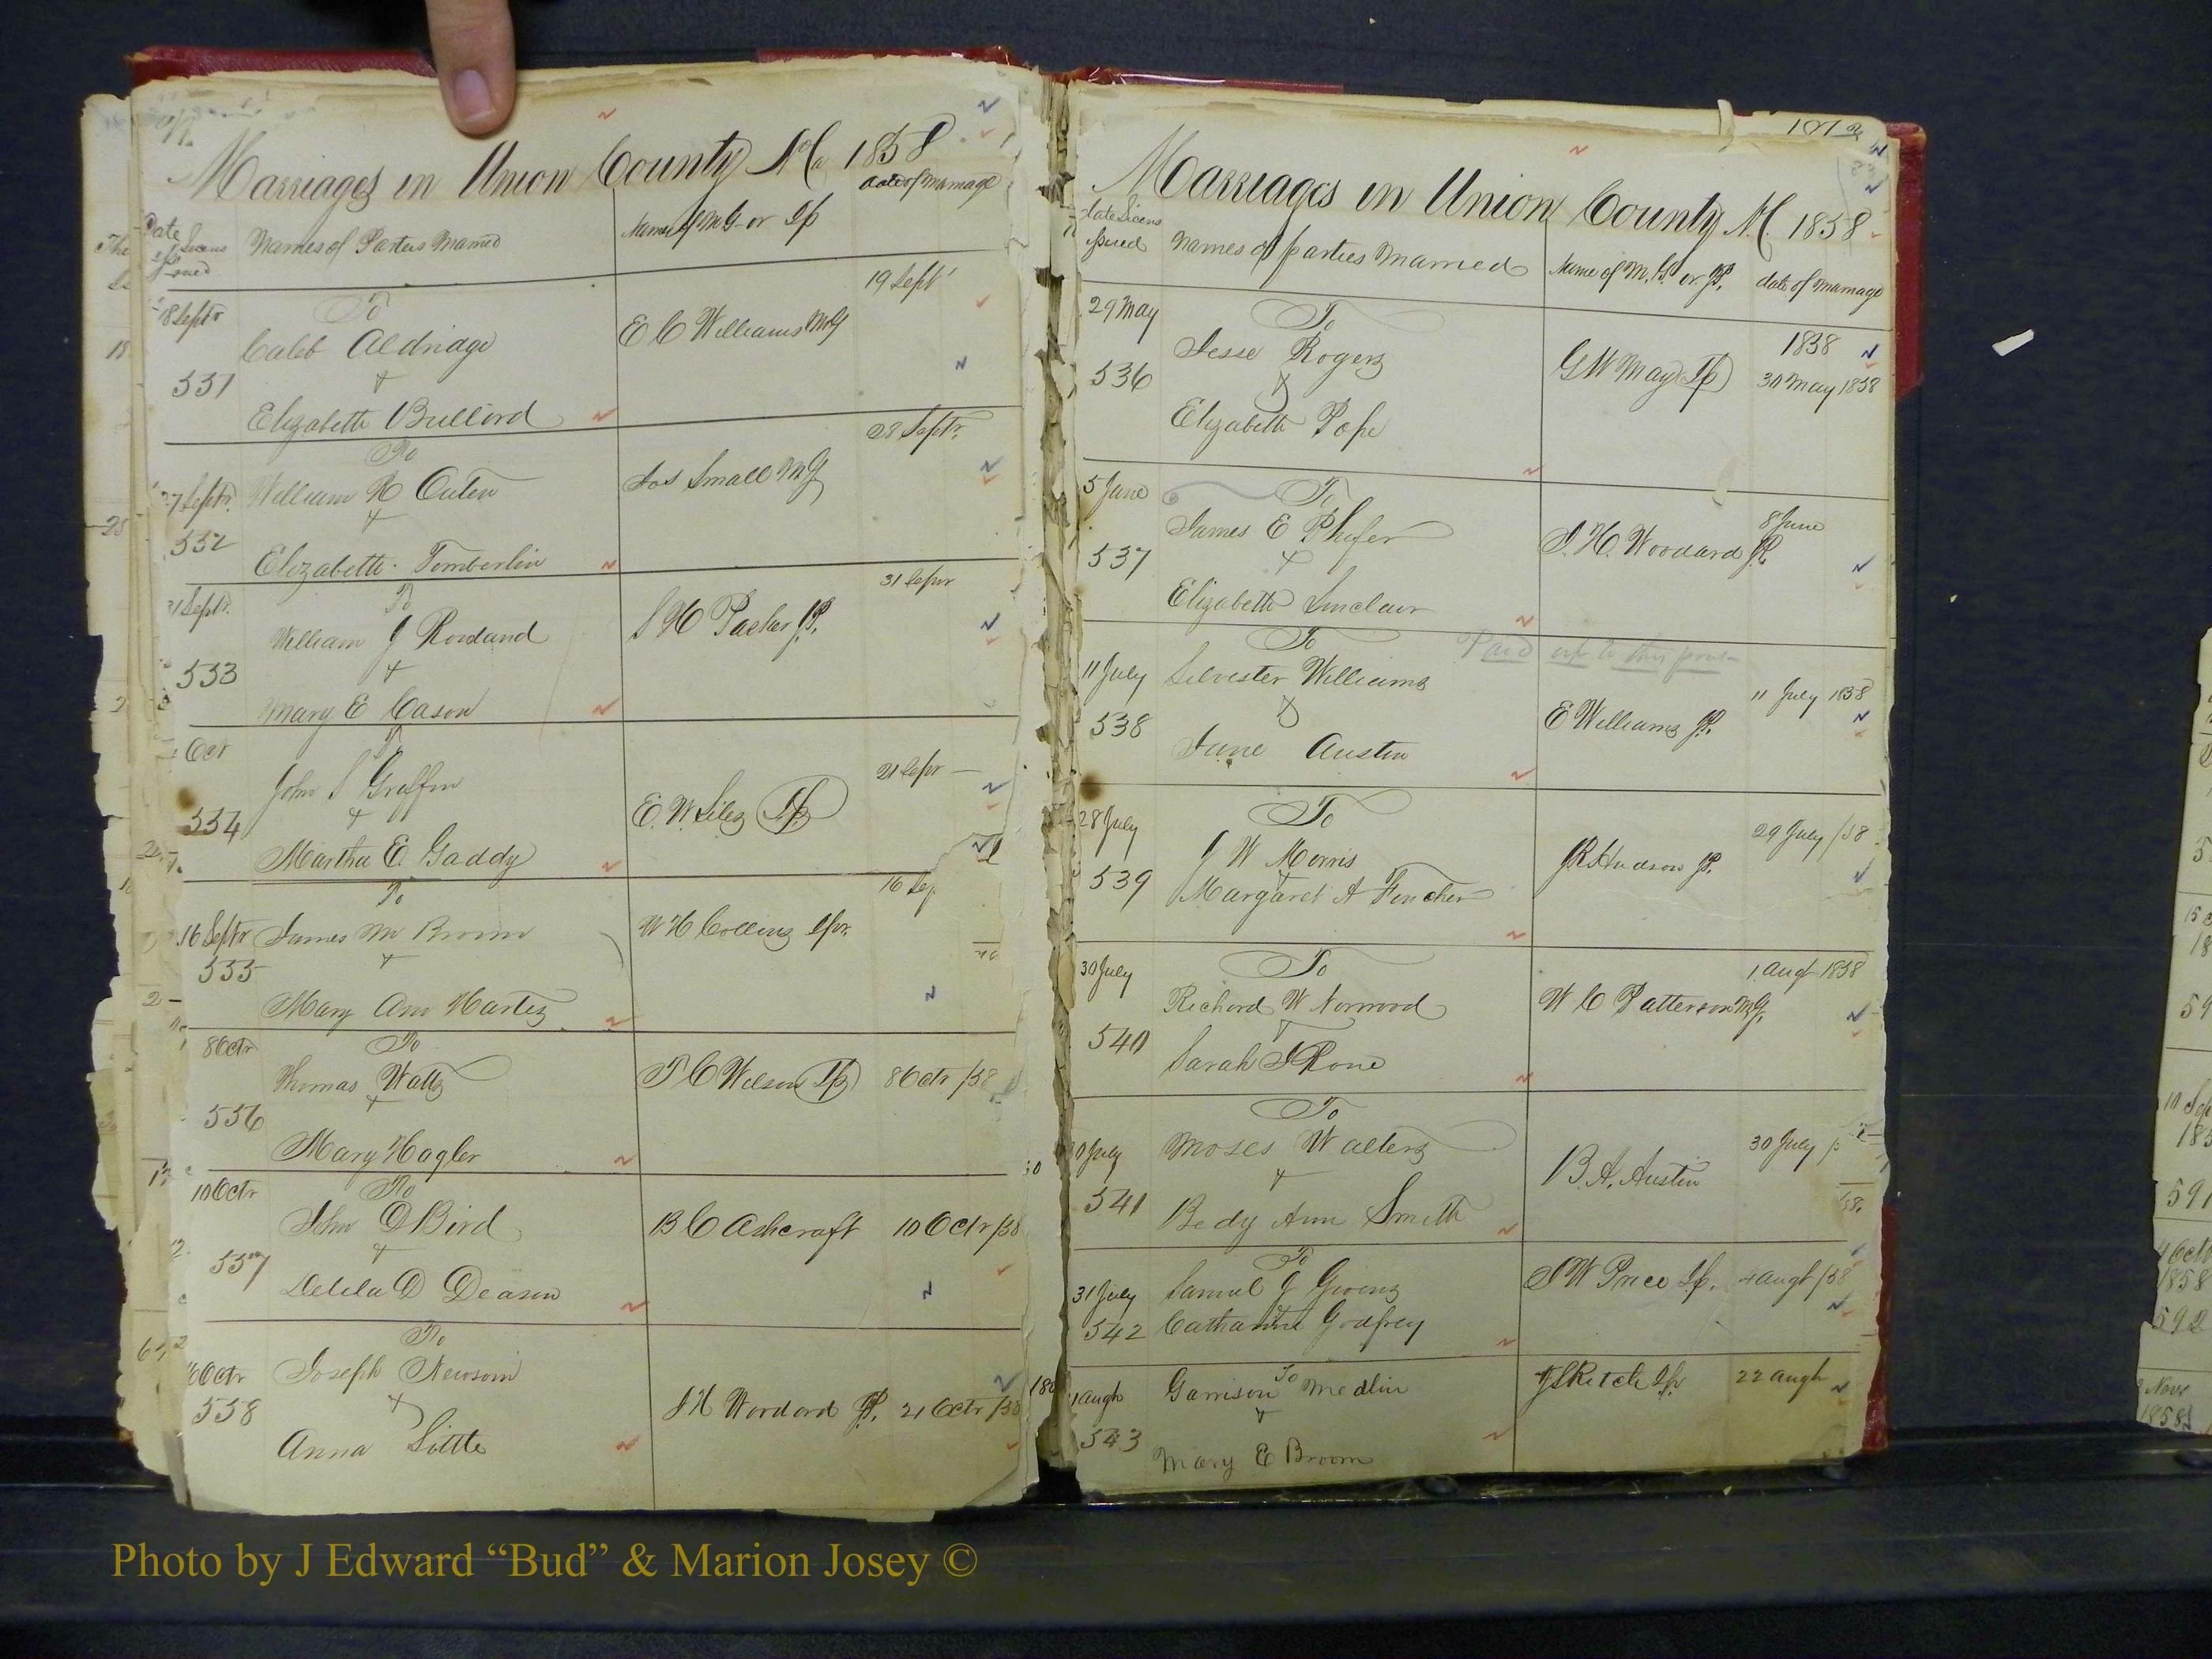 Marriages in Union County No Ca 1858
Date of Licens Issued
Names of Parties Married
Name of M G or Jp
date of marriage
18 Septr
To
Caleb Aldridge
&
Elizabeth Bullord
551
E C Williams MG
19 Sept
27 Septr.
To
William R Cuten
&
Elizabeth Tomberlin
552
Jos Small MG
28 Septr.
31 Septr.
To
William J Rowland
&
Mary E Cason
553
S H Parker JP.
31 Sepr
Oct
To
John S Griffin
&
Martha E. Gaddy
554
E. W. Liles Jp
21 Sepr
16 Septr
To
James M Broom
&
Mary Ann Hartis
555
W H Collins
16 Sep
8 Octr
To
Thomas Watts
&
Mary Hagler
556
T C Wilson Jp
8 Octr /58
10 Octr
To
John D Bird
&
Delila D Deason
557
B C Ashcraft
10 Octr /58
Octr
To
Joseph Newsom
&
Anna Little
558
J H Wordard JP.
21 Octr /58
Marriages in Union County N.C. 1858
date Licens Issued
names of parties married
Name of M.G. or JP.
date of marriage
29 May
To
Jesse Rogers
&
Elizabeth Pope
536
G W May Jp
1858
30 May 1858
5 June
To
James E Phifer
&
Elizabeth Sinclair
537
J. H. Woodard JP.
8 June
Paid up to this point
11 July
To
Silvester Williams
&
Jane Austin
538
E Williams JP.
11 July 1858
28 July
To
J W Morris
&
Margaret A Fincher
539
J R Hudson JP.
29 July /58
30 July
To
Richard W Norwood
&
Sarah J Rone
540
W C Patterson MG.
1 Augt 1858
30 July
To
Moses Walters
&
Bedy Ann Smith
541
B. A. Austin
30 July /58.
31 July
To
Samuel J Givens
&
Catharine Godfrey
542
J W Price Jp.
4 Augt /58
1 Augt
To
Garrison Medlin
&
Mary E Broom
543
22 Augt
10 Sep
185
591
4 Oct
1858
592
Nov
1858
Photo by J Edward “Bud” & Marion Josey ©